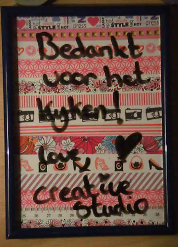 STYLE
Bedankt
voor het
kijken!
love
creative
studio